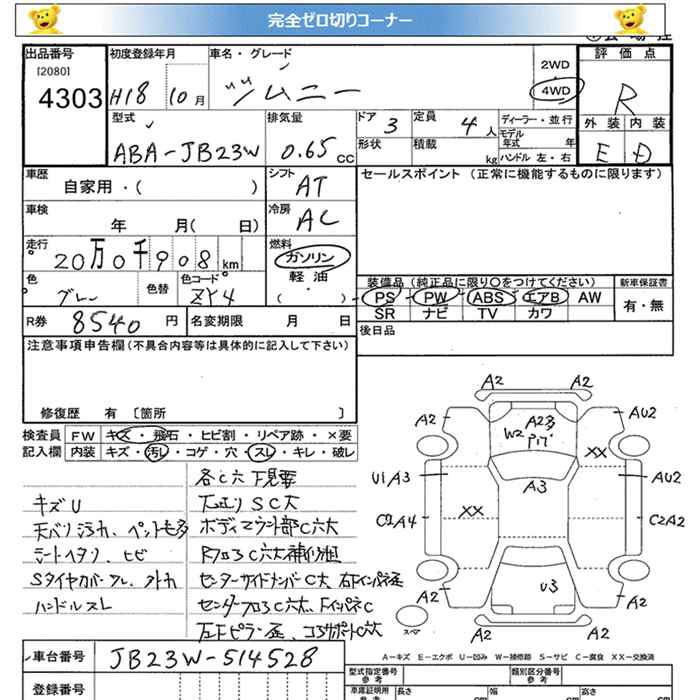 完全ゼロ切りコーナー
出品番号
[2080]
4303
初度登録年月
H18 10月
車名・グレード
ジムニー
2WD
4WD
評価点
R
外装 内装
E D
型式
ABA-JB23W
排気量
0.65 CC
ドア 3
形状
定員 4人
積載 kg
ディーラー・並行
モデル年式 年
ハンドル 左・右
車歴
自家用・( )
シフト
AT
セールスポイント (正常に機能するものに限ります)
車検
年 月( 日)
冷房
AC
走行
20万0千908km
燃料
ガソリン
軽油
( ・ )
色
グレー
色替
色コード
ZY4
装備品 (純正品に限り〇をつけてください)
PS PW ABS エアB AW
SR ナビ TV カワ
新車保証書
有・無
R券 8540円
名変期限 月 日
後日品
注意事項申告欄(不具合内容等は具体的に記入して下さい)
修復歴 有 〔箇所 〕
検査員
記入欄
FW キズ・飛石・ヒビ割・リペア跡・×要
内装 キズ・汚レ・コゲ・穴・スレ・キレ・破レ
各C穴下見要
キズU
天バリ汚れ、ペット毛多
シートヘタリ、ヒビ
ハンドルスレ
ボディマウント部C穴大
A2 A2
A2
A2多
W2
AU2
XX
U1 A3
A3
AU2
C2A4
XX
C2A2
U3
A2 A2
A2 A2
スペア
A-キズ E-エクボ U-凹み W-補修跡 S-サビ C-腐食 XX-交換済
車台番号
JB23W-514528
登録番号
型式指定番号
参考
類別区分番号
参考
車庫証明用
参考
長さ cm
幅 cm
高さ cm